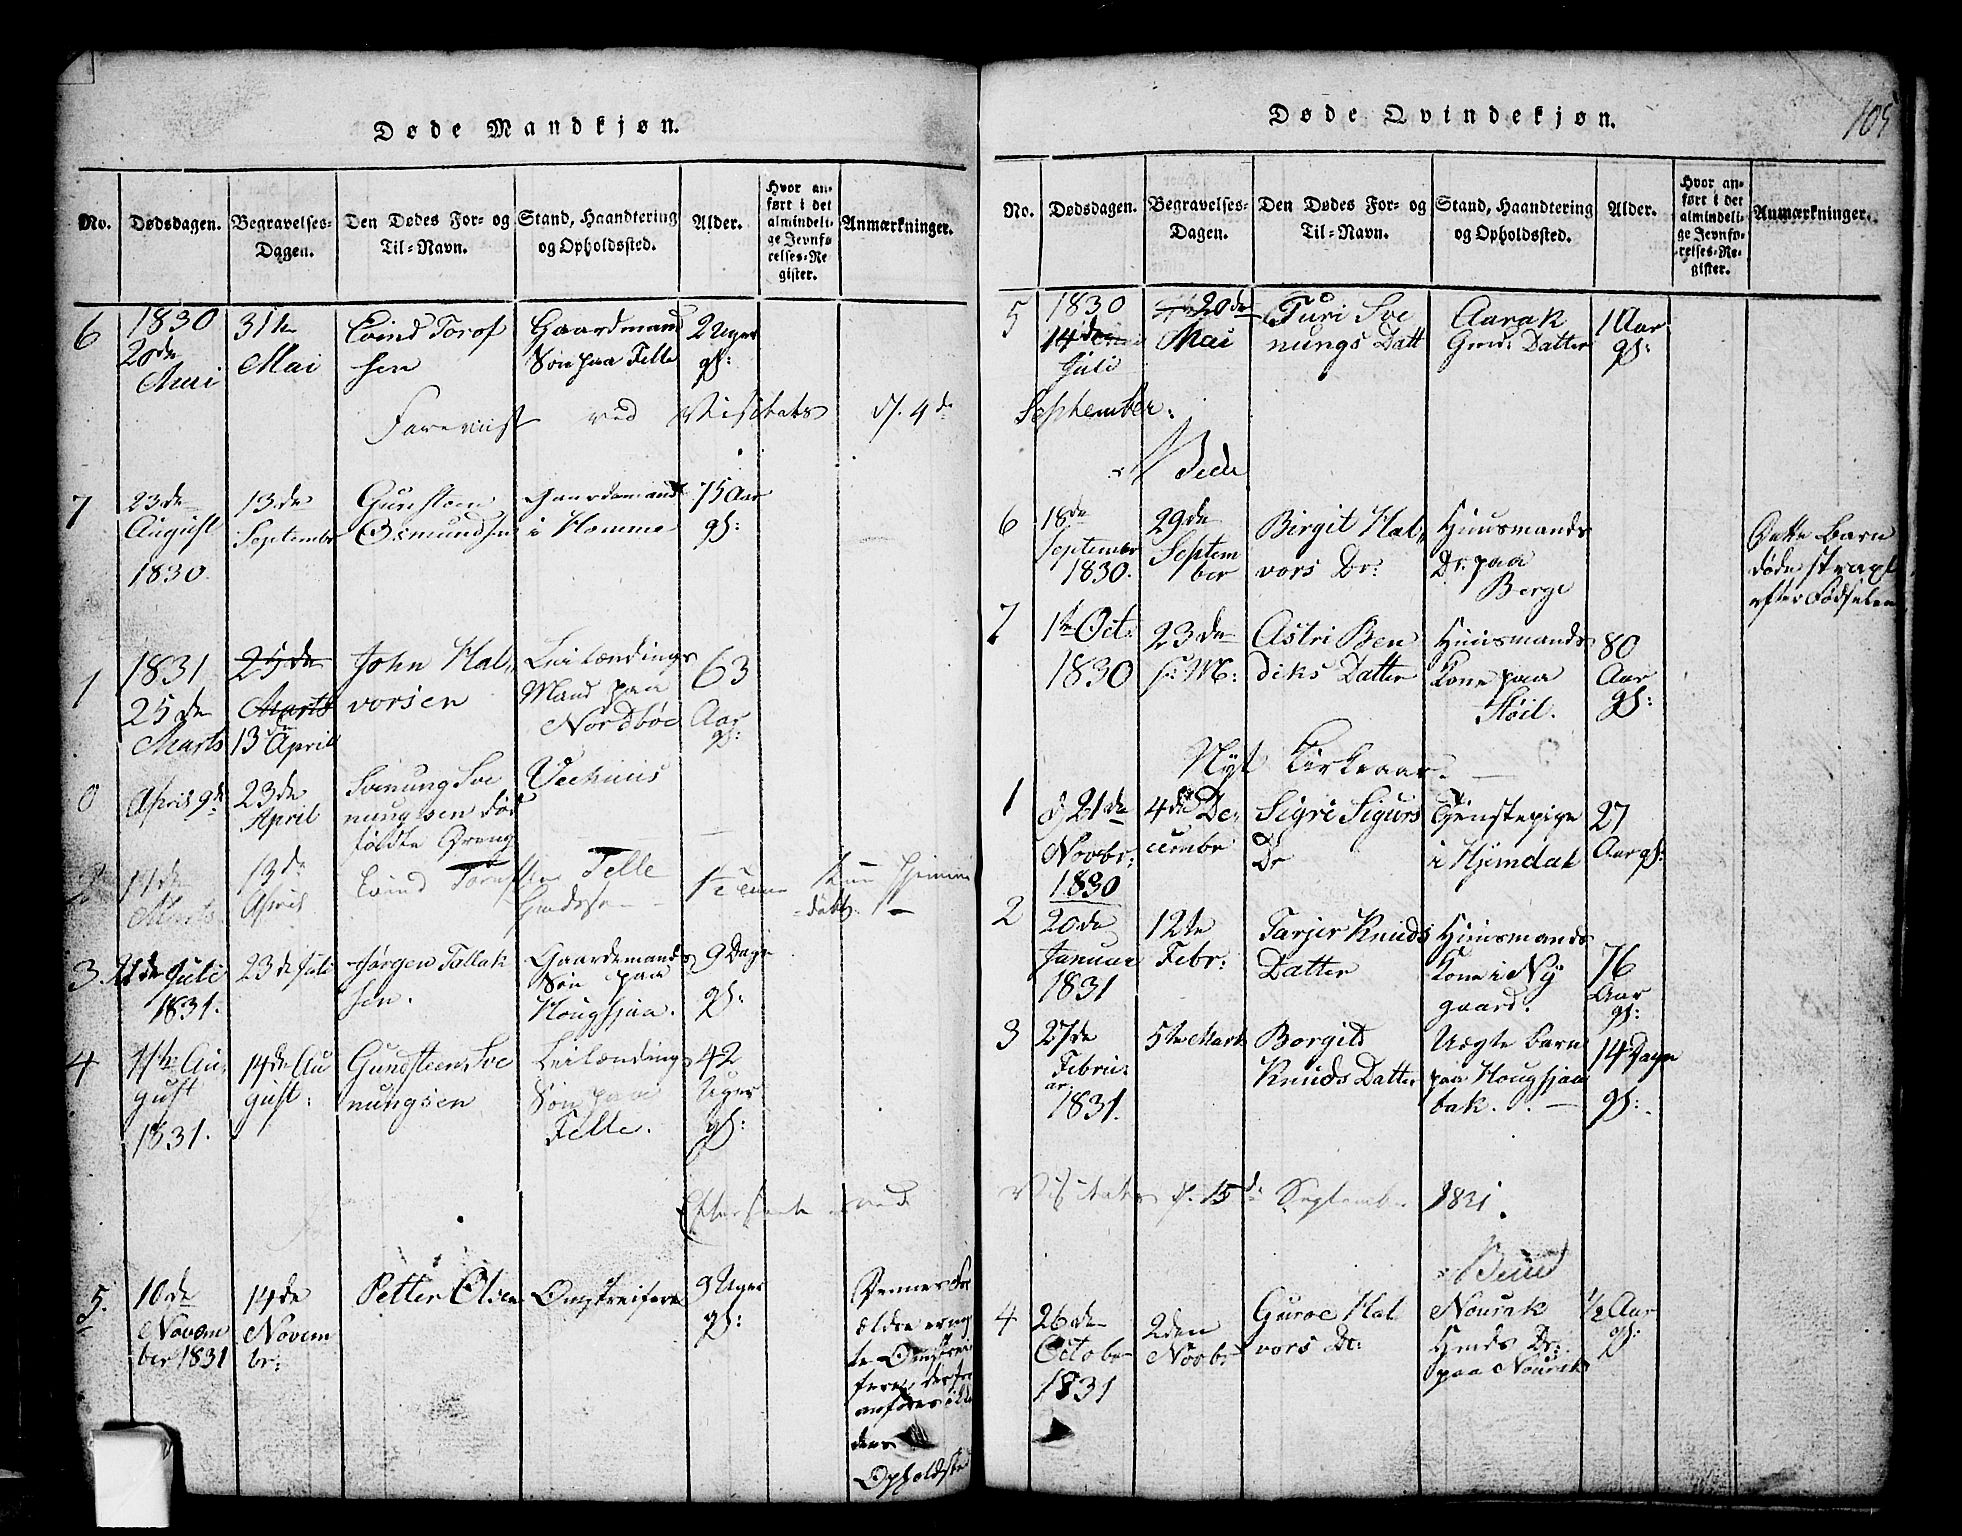 Døde Mandkjøn.
No.
Dødsdagen.
Begravelses-
Dagen.
Den Dødes For- og
Til-Navn.
Stand, Haandtering
og Opholdssted.
Alder.
Hvor an-
ført i det
almindeli-
ge Jevnfø-
relses-Re-
gister.
Anmærkninger.
6
1830
20de
Mai
31te
Mai
Eivind Torof
sen
Gaardmand
Søn paa Felle
2 Uger
gl:
Foreviist ved Visitats d. 4de
7
23de
August
1830.
13de
Septembr
Gunsteen
Osmundsen
Gaardemand
i Homme
75 Aar
gl:
1
1831
25de
Marts
25de
Marts
13de April
John Hal,,
vorsen
Leilændings
Mand paa
Nordbøe
63
Aar
gl:
0
April 9de
23de
April
Svenung Sve
nungsen død
fødte Dreng
Veehuus
2
11de
Marts
13de
April
Eivind
Felle
3.
21de Juli
1831.
23de Juli
Jørgen Tallak
sen.
Gaardemands
Søn paa
Hougsjaa.
9 Dage
gl:
4
11te Au,
gust
1831.
14de Au
gust.
Gundsteen Sve
nungsen
Leilændings
Søn paa
Felle.
42
Uger
gl:
5.
10de
Novem
ber 1831
14de
Novem
br:
Petter Olsen
Omstreifere
9 Uger
gl:
ældre
te Omstrei
fere, derfor
anføres ikke
deres
Opholdsted
Døde Qvindekjøn.
105
No.
Dødsdagen.
Begravelses-
Dagen.
Den Dødes For- og
Til-Navn.
Stand, Haandtering
og Opholdssted.
Alder.
Hvor an-
ført i det
almindeli-
ge Jevnfø-
relses-Re-
gister.
Anmærkninger.
5
1830
14de
Juli
20de
Mai
Turi Sve
nungs Datt
Aarak
Gmd: Datter
1 Aar
gl:
September.
6
18de
Septembr
1830.
29de
Septem
ber
Birgit Hal,,
vors Dr:
Huusmands
Dr. paa
Berge
Dette Barn
døde strax
efter Fødselen
7
1te Oct.
1830
23de
s: M:
Astri Ben
diks Datter
Huusmands
Kone paa
Støil.
80
Aar
gl:
Nyt Kirkeaar.
1
d 21de
Novbr:
1830
4de De,
cembr
Sigri Sigurs
Dr
Tjenstepige
i Hjemdal
27
Aar gl:
2
20de
Januar
1831
12te
Febr:
Tarjer Knuds
Datter
Huusmands
Kone i Ny
gaard.
76
Aar
gl:
3
27de
Febru,
ar.
1831.
5te Mart
Borgild
Knuds Datter
Uægte Barn
paa Hougsjaa
bak.
14 Dage
gl:
Visitats d. 15de September 1831.
4
26de
Octobr
1831
2den
Novbr
Guroe Hal
vors Dr:
Nourak
Hmds Dr:
paa Nourak
1/2 Aar
gl: